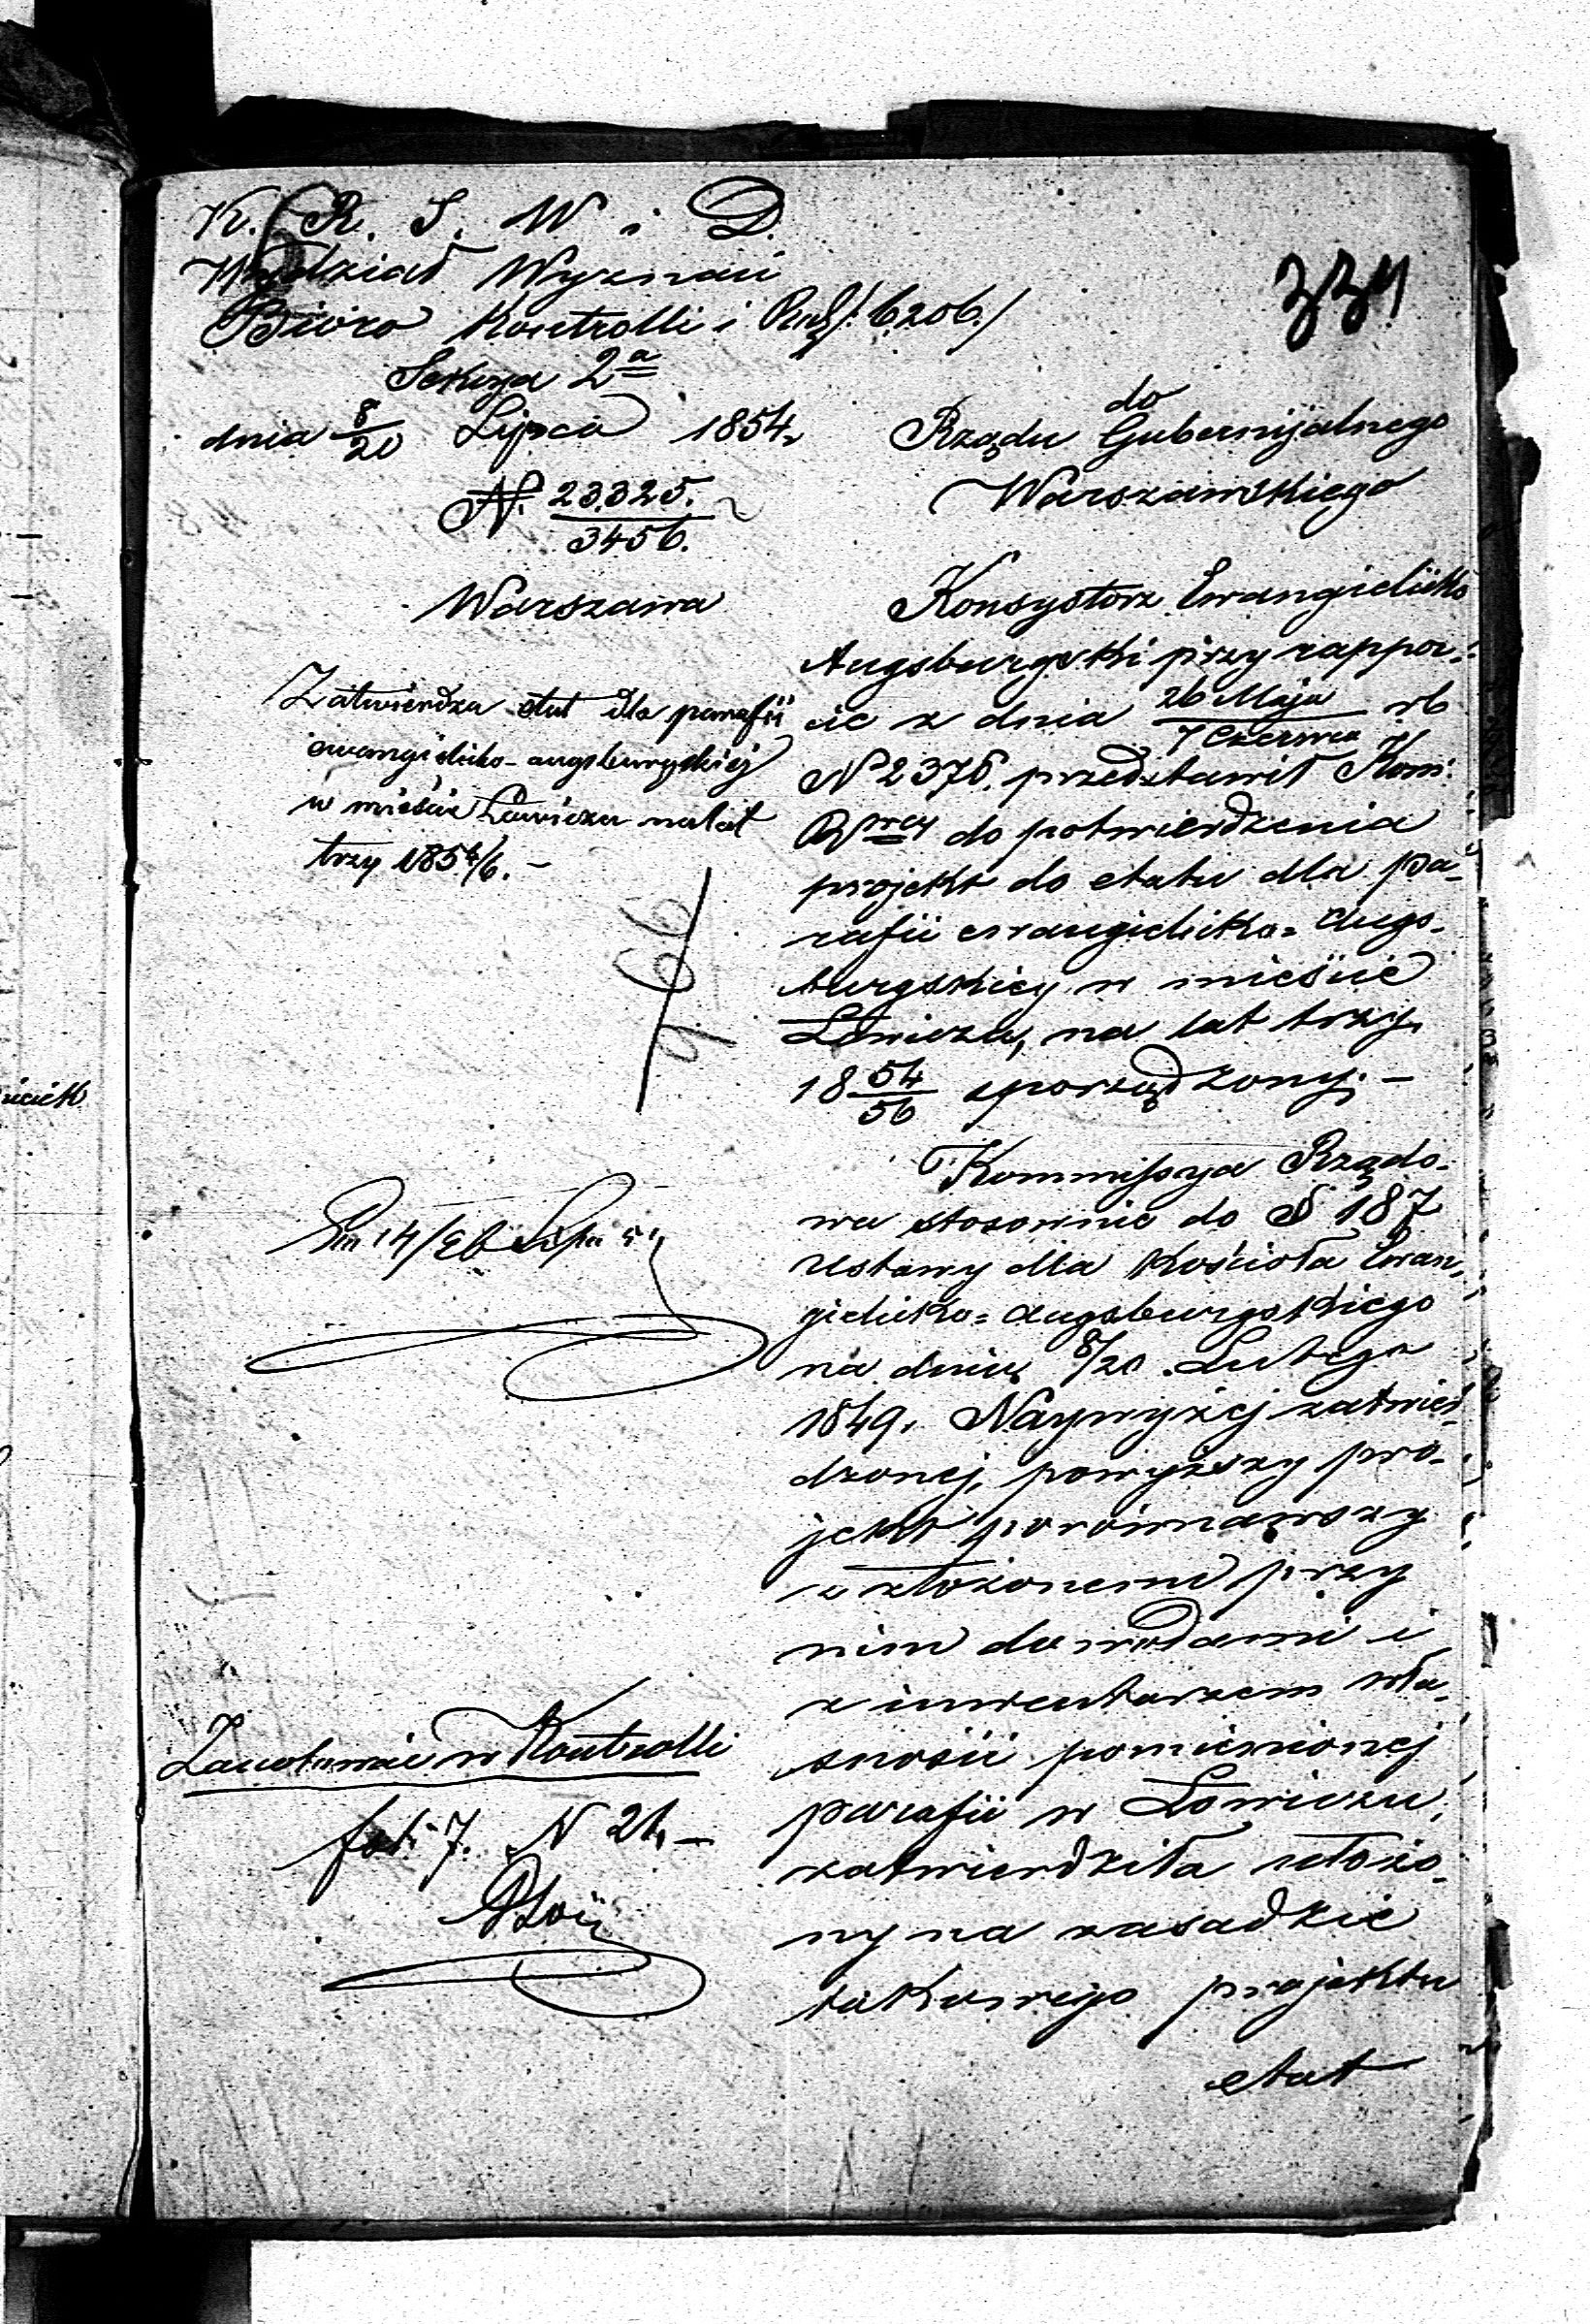 K. R. S. W i D.
Wydział Wyznań
Bióro Kontrolli i Rach /: 6206 /
Sekcya 2a
dnia 8/20 Lipca 1854.
N. 23325./3456.
Warszawa
334
do
Rządu Gubernijalnego
Warszawskiego
Zatwierdza etat dla parafii
ewangielicko-augsburgskiéj
w mieście Łowiczu na lat
trzy 1854/6. –
Zanotować w Kontrolli
fol: 7. N 21. –
Konsystorz Ewangielicko
Augsburgski przy rappor-
cie z dnia 26 Maja/7 Czerwca rb
N 2376. przedstawił Kom:
Rząwej do potwierdzenia
projekt do etatu dla pa-
rafii ewangielicko= Augs-
burgskiey w mieście
Łowiczu, na lat trzy
18 54/56 sporządzony. –
Kommissya Rządo-
wa stosownie do § 187
ustawy dla Kościoła Ewan-
gielicko= Augsburgskiego
na dniu 8/20 Lutego
1849. Naywyżej zatwier-
dzonej, powyższy pro-
jekt porównawszy
z złożonemi przy
nim dowodami i
z inwentarzem wła-
sności pomienionej
parafii w Łowiczu,
zatwierdziła ułożo-
ny na zasadzie
takowego projektu
etat